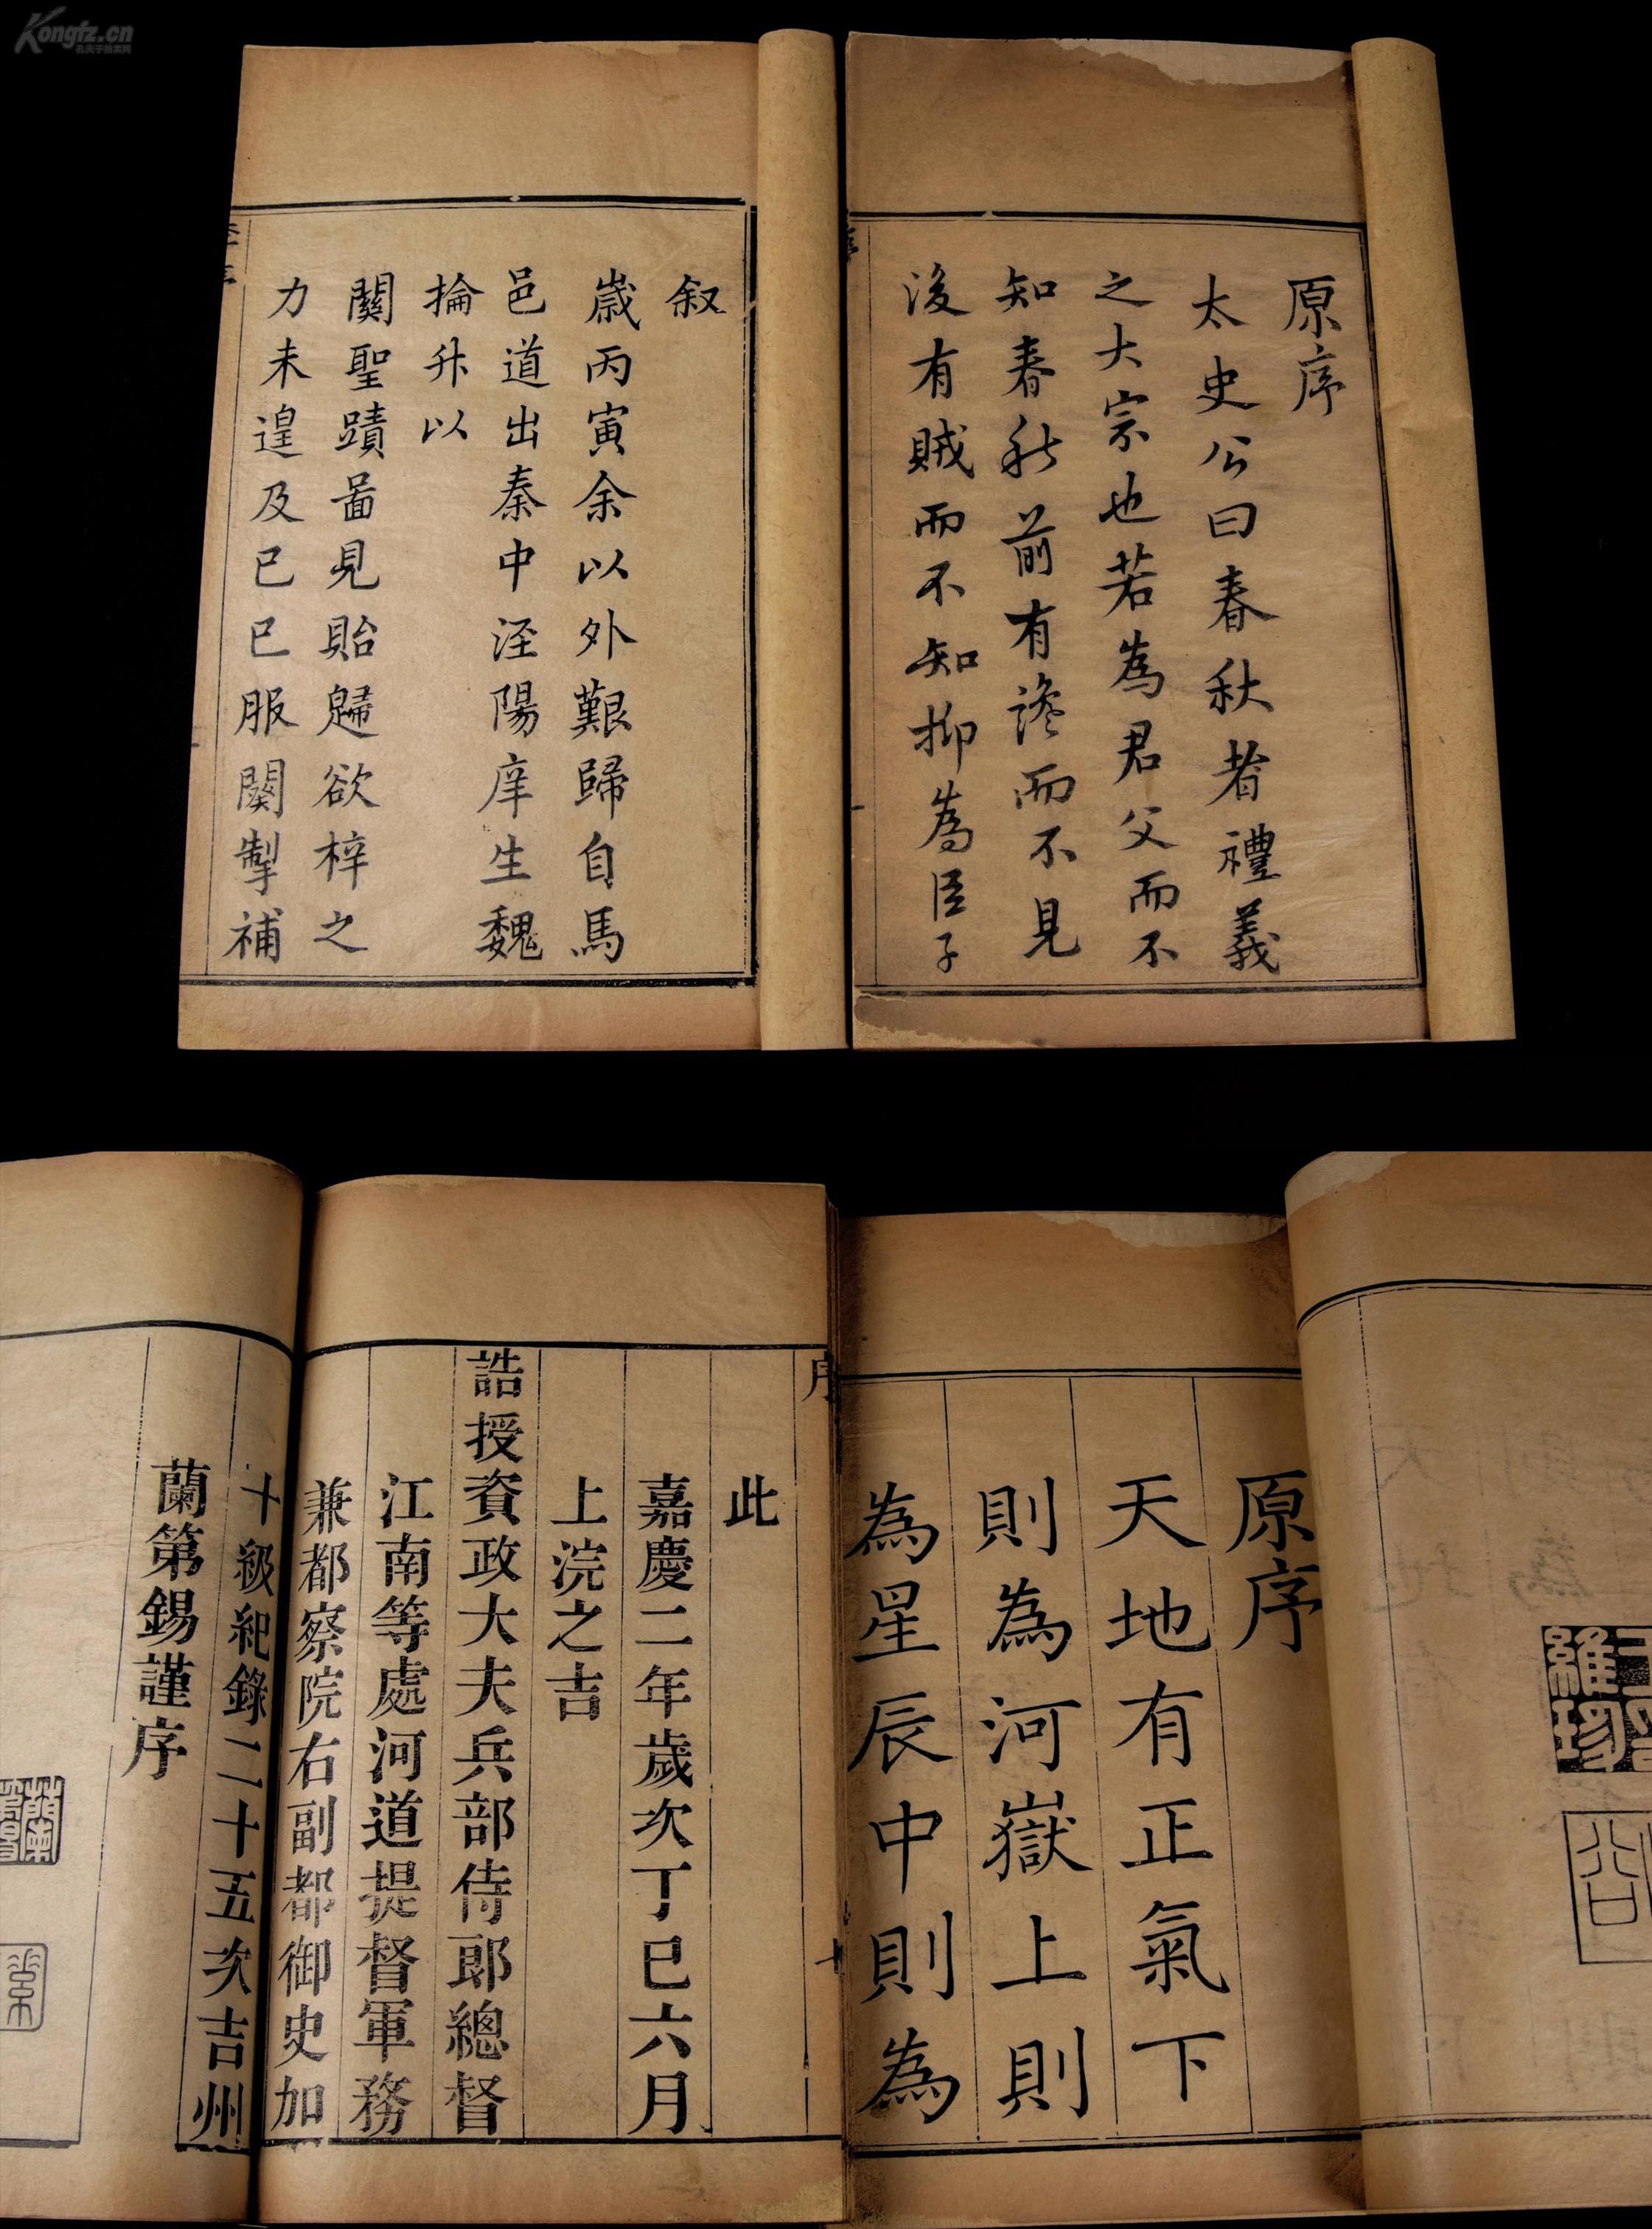 Kongfz.cn
孔夫子拍卖网
原序
太史公曰春秋者禮義
之大宗也若為君父而不
知春秋前有讒而不見
後有賊而不知抑為臣子
叙
歲丙寅余以外艱歸自馬
邑道出秦中涇陽庠生魏
掄升以
關聖蹟啚見貽歸欲梓之
力未遑及已巳服闋掣補
原序
天地有正氣下
則為河嶽上則
為星辰中則為
序
此
嘉慶二年歲次丁巳六月
上浣之吉
誥授資政大夫兵部侍郎總督
江南等處河道提督軍務
兼都察院右副都御史加
十級紀錄二十五次吉州
蘭第錫謹序